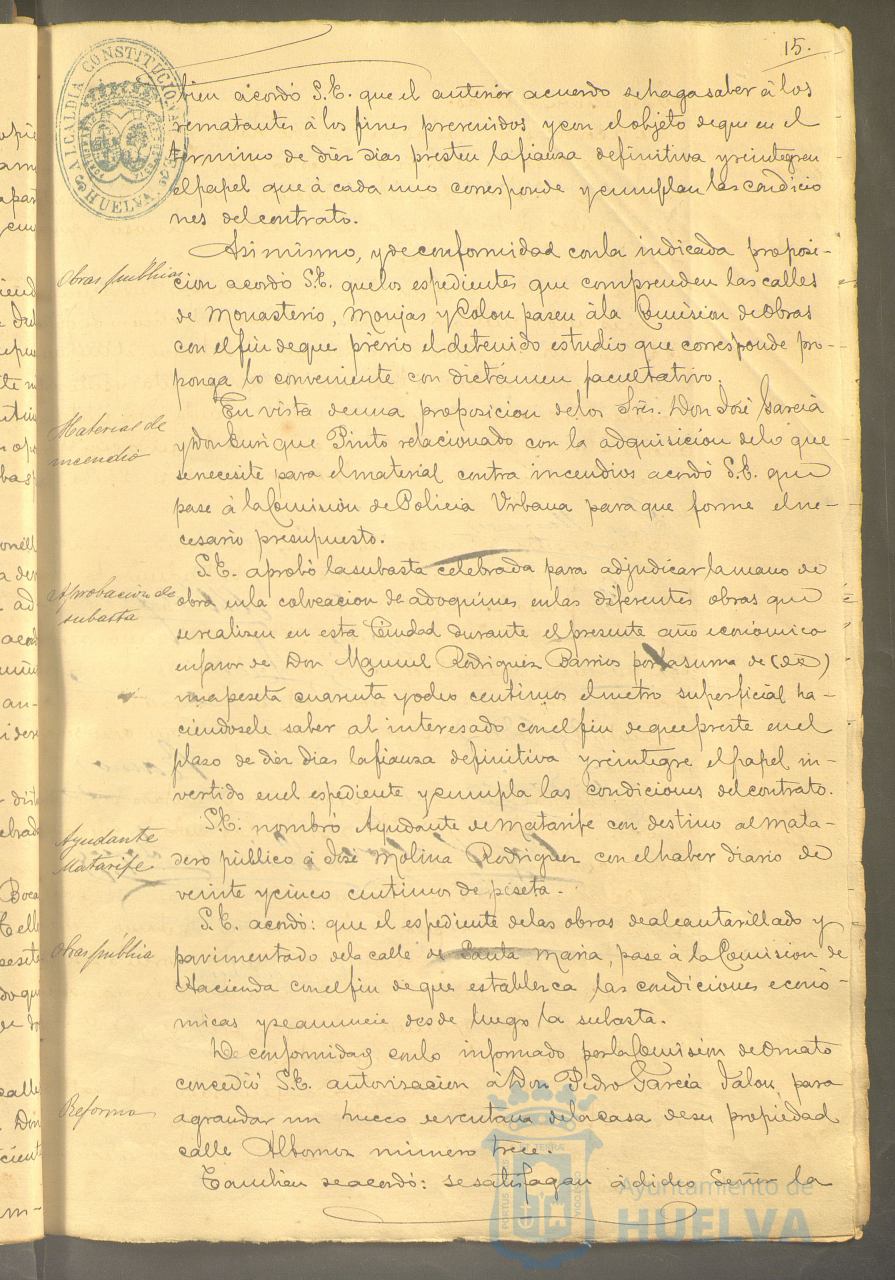 15.
ALCALDÍA CONSTITUCIONAL
HUELVA
bien acordó S.E. que el anterior acuerdo se haga saber á los
rematantes á los fines prevenidos y con el objeto de que en el
término de diez dias presten la fianza definitiva y reintegren
el papel que á cada uno corresponde y cumplan las condicio
nes del contrato.
Obras publicas
Asi mismo, y de conformidad con la indicada proposi-
cion acordó S.E. que los espedientes que comprenden las calles
de Monasterio, Monjas y Colon pasen á la Comision de Obras
con el fin de que prévio el detenido estudio que corresponde pro-
ponga lo conveniente con dictámen facultativo.
Material de
incendio
En vista de una proposicion de los Sres. Don José García
y Don Enrique Pinto relacionado con la adquisicion de lo que
se necesite para el material contra incendios acordó S.E. que
pase á la Comisión de Policia Urbana para que forme el ne-
cesario presupuesto.
Aprobacion de
subasta
S.E. aprobó la subasta celebrada para adjudicar la mano de
obra en la colocacion de adoquines en las diferentes obras que
se realizen en esta Ciudad durante el presente año económico
en favor de Don Manuel Rodriguez Barrios por la suma de (de)
una peseta cuarenta y ocho centimos el metro superficial ha-
ciéndosele saber al interesado con el fin de que preste en el
plazo de diez dias la fianza definitiva y reintegre el papel in-
vertido en el espediente y cumpla las condiciones del contrato.
Ayudante
Matarife
S.E. nombró Ayudante de Matarife con destino al Mata-
dero público á José Molina Rodriguez con el haber diario de
veinte y cinco centimos de peseta.
Obras públia
S.E. acordó: que el espediente de las obras de alcantarillado y
pavimentado de la calle de Santa Maria, pase á la Comision de
Hacienda con el fin de que establezca las condiciones econó-
micas y se anuncie desde luego la subasta.
Reforma
De conformidad con lo informado por la Comisión de Ornato
concedió S.E. autorizacion á Don Pedro García Jalon para
agrandar un hueco de ventana de la casa de su propiedad
calle Albornoz número trece.
Tambien se acordó: se satisfagan á dicho Señor la
PORTUS
ET TERRAE
CUSTODIA
Ayuntamiento de
HUELVA